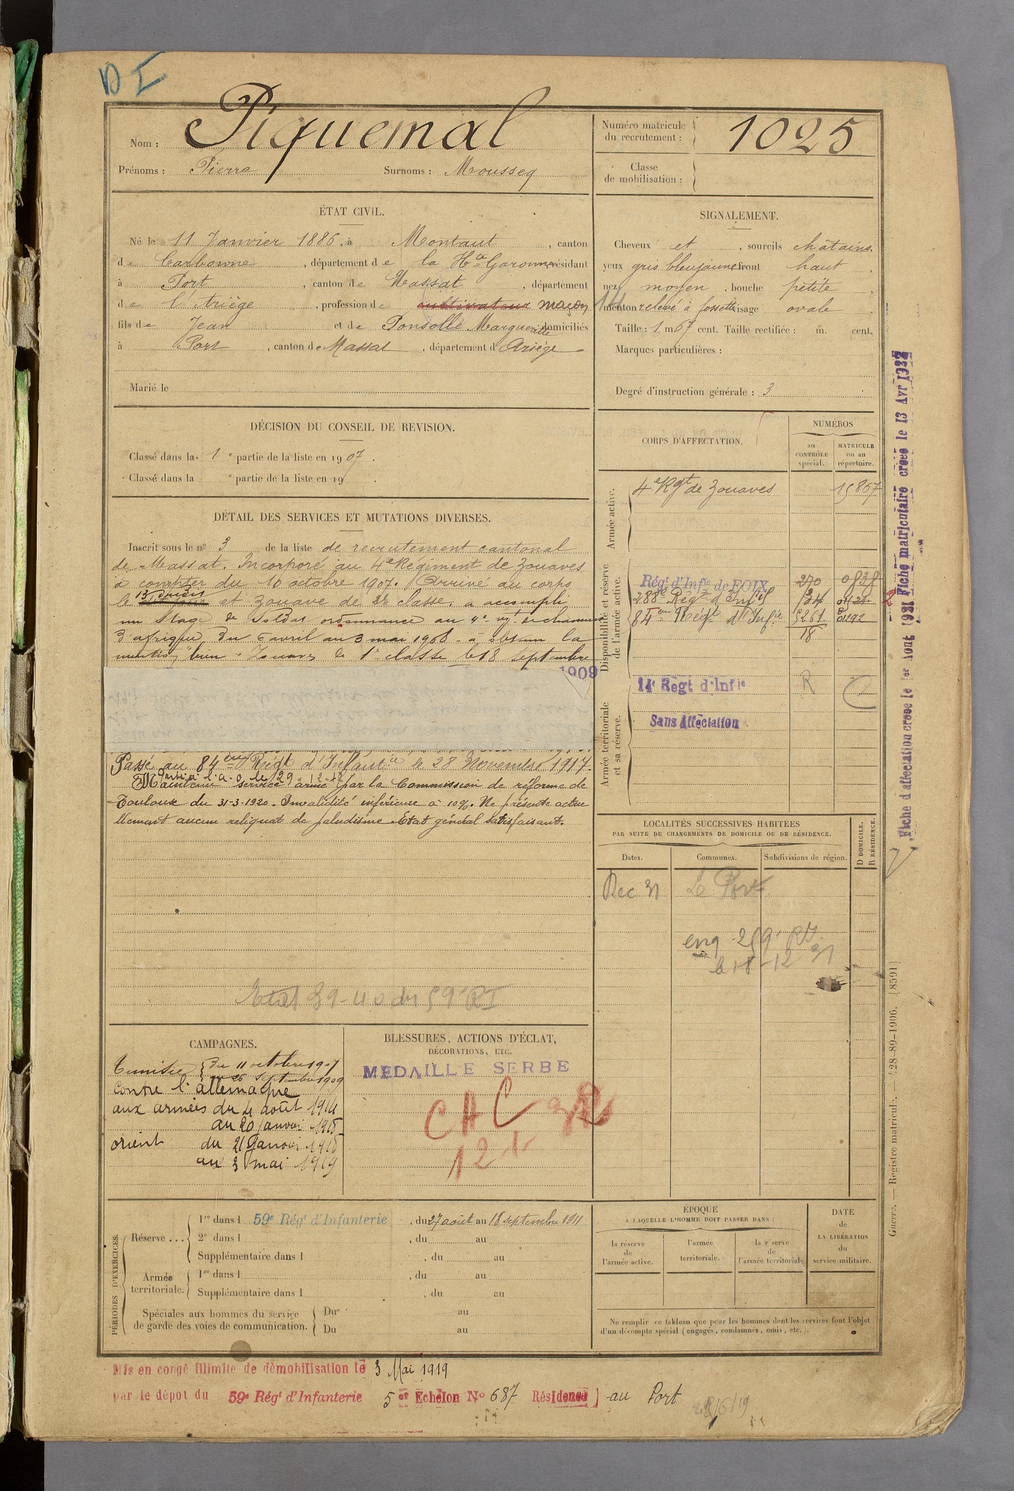 D I
Nom : Piquemal
Prénoms : Pierre Surnoms : Mousseq
Numéro matricule du recrutement : 1025
Classe de mobilisation :
ÉTAT CIVIL.
Né le 11 Janvier 1886, à Montaut, canton
de Carbonne, département de la Hte Garonne, résidant
à Port, canton de Massat, département
de l'Ariège, profession de cultivateur maçon
fils de Jean et de Ponsolle Marguerite domiciliés
à Port, canton de Massat, département d'Ariège
Marié le
SIGNALEMENT.
Cheveux et, sourcils châtains
yeux gris bleu jaune front haut
nez moyen, bouche petite
menton relevé à fossette visage ovale
Taille : 1 m 67 cent. Taille rectifiée : m. cent.
Marques particulières :
Degré d'instruction générale : 3
DÉCISION DU CONSEIL DE REVISION.
Classé dans la 1e partie de la liste en 1907.
Classé dans la e partie de la liste en 19
DÉTAIL DES SERVICES ET MUTATIONS DIVERSES.
Inscrit sous le n° 3 de la liste de recrutement cantonal
de Massat. Incorporé au 4e Régiment de Zouaves
à compter du 10 octobre 1907. Arrivé au corps
le 13 dudit et Zouave de 2e classe, a accompli
un Stage de Soldat ordonnance au 4e rgt de chasseurs
d'afrique, du 6 avril au 3 mai 1908. a obtenu la
mention "bien". Zouave de 1e classe le 18 septembre
1909
Passé au 84ème Régt d'Infanterie le 28 Novembre 1917.
Parti à l'a. o. le 29-12-17
Maintenu service armé par la Commission de réforme de
Toulouse du 31-3-1920. Invalidité inférieure à 10%. Ne présente actuel
lement aucun reliquat de paludisme. Etat général satisfaisant.
Etat 39-40 du 59e RI
CORPS D'AFFECTATION.
NUMÉROS
au CONTRÔLE spécial.
MATRICULE ou au répertoire.
Armée active.
4e Rgt de Zouaves 15867
Disponibilité et réserve de l'armée active.
Régt d'Infie de FOIX 270
288e Régt d'Infie 134
84ème Régt d'Infie 5261
18
Armée territoriale et sa réserve.
14e Régt d'Infie R C
Sans Affectation
LOCALITÉS SUCCESSIVES HABITÉES
PAR SUITE DE CHANGEMENTS DE DOMICILE OU DE RÉSIDENCE.
Dates. Communes. Subdivisions de région. D DOMICILE. R RÉSIDENCE.
Rec 31 Le Port
18-12 31
CAMPAGNES.
Tunisie du 11 octobre 1907
au 26 septembre 1909
contre l'allemagne
aux armées du 4 août 1914
au 20 janvier 1915
orient du 21 Janvier 1915
au 3 mai 1919
BLESSURES, ACTIONS D'ÉCLAT,
DÉCORATIONS, ETC.
MEDAILLE SERBE
PÉRIODES D'EXERCICES.
Réserve ... 1re dans l 59e Régt d'Infanterie, du 27 août au 18 septembre 1911
2e dans l , du au
Supplémentaire dans l , du au
Armée territoriale. 1re dans l , du au
Supplémentaire dans l , du au
Spéciales aux hommes du service de garde des voies de communication. Du au
Du au
ÉPOQUE
À LAQUELLE L'HOMME DOIT PASSER DANS :
la réserve de l'armée active.
l'armée territoriale.
la réserve de l'armée territoriale.
DATE de LA LIBÉRATION du service militaire.
Ne remplir ce tableau que pour les hommes dont les services font l'objet
d'un décompte spécial (engagés, condamnés, omis, etc.).
Mis en congé illimité de démobilisation le 3 Mai 1919
par le dépot du 59e Régt d'Infanterie 5e Echelon N° 687 Résidence au Port
Fiche d'affectation créée le 1er Août 1931 Fiche matriculaire créée le 13 Avr 1932
Guerre. — Registre matricule. — 28-89-1906. [8591]